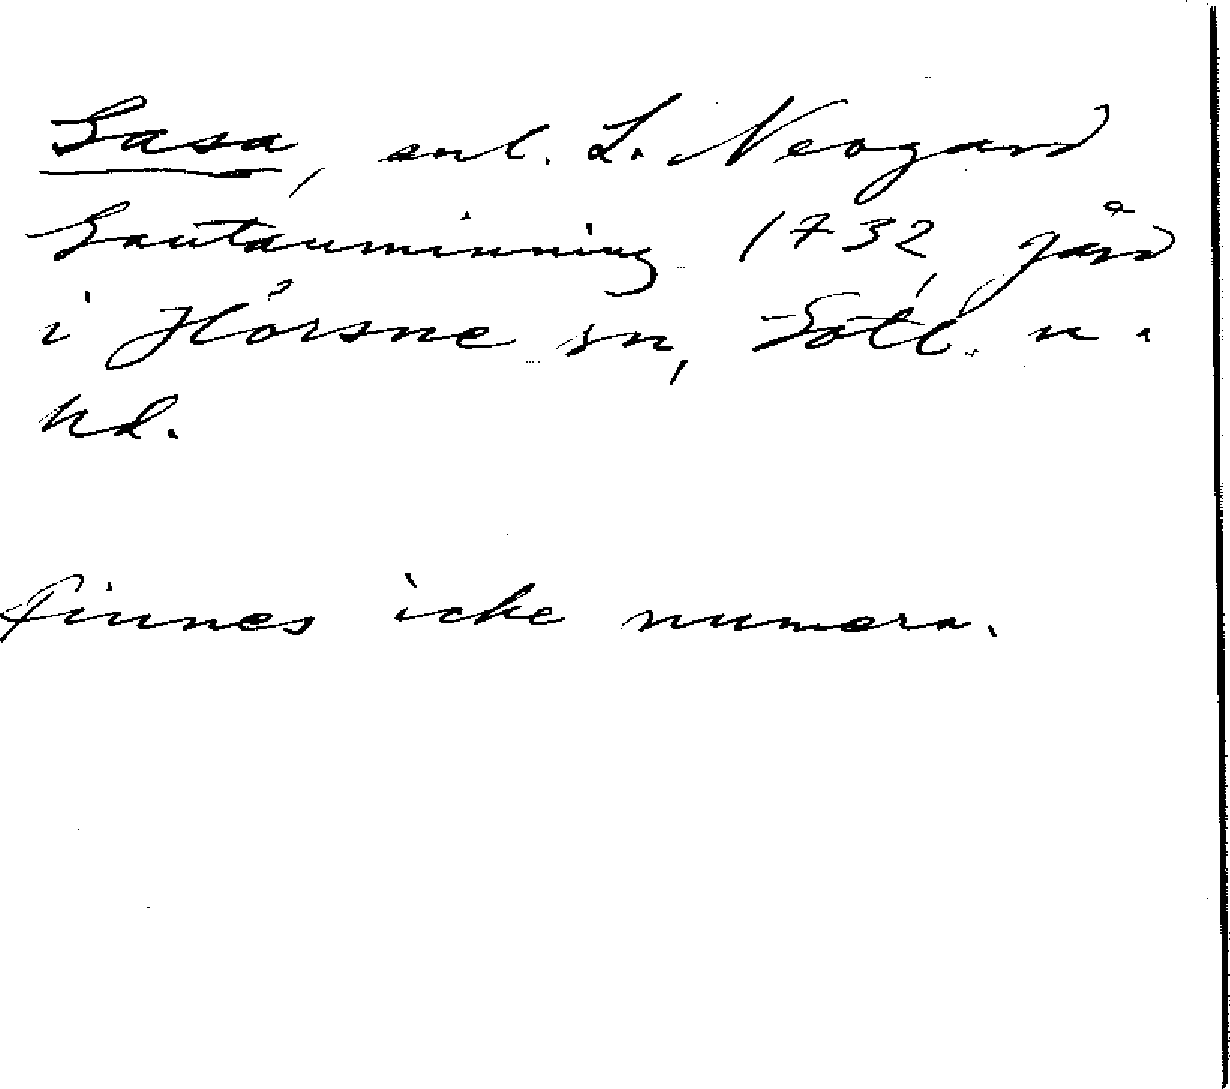 Gasa, enl. L. Neogard
Gautauminning 1732, gård
i Hörsne sn, Gotl. n.
hd.
finnes icke numera.